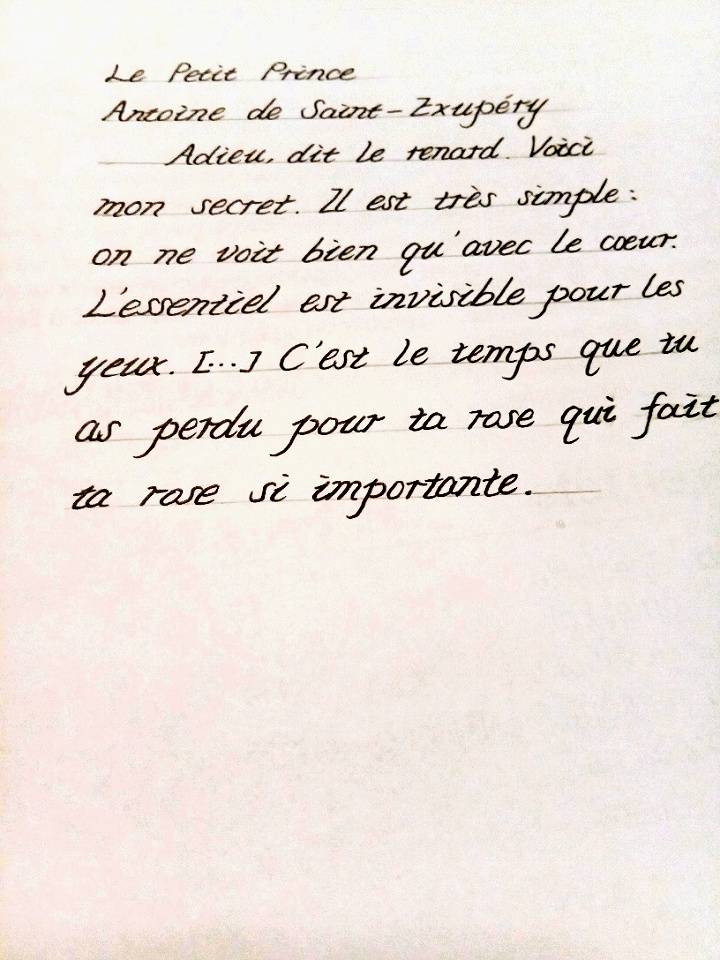 Le Petit Prince
Antoine de Saint-Exupéry
Adieu, dit le renard. Voici
mon secret. Il est très simple :
on ne voit bien qu'avec le cœur.
L'essentiel est invisible pour les
yeux. [...] C'est le temps que tu
as perdu pour ta rose qui fait
ta rose si importante.